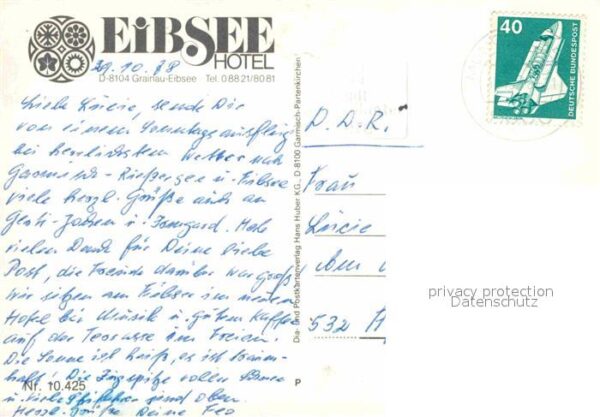 EiBSEE
HOTEL
29.10.78
D-8104 Grainau-Eibsee Tel. 08821/8081
Liebe Lúcie, sende Dir
von einem Sonntagsausflug
bei herrlichstem Wetter nach
Garmisch - Rießersee u. Eibsee
viele herzl. Grüße auch an
Gerti - Jochen u. Irmgard. Hab
vielen Dank für Deine liebe
Post, die Freude darüber war groß
Wir sitzen am Eibsee im neuen
Hotel bei Musik u. gutem Kaffee
auf der Terrasse im Freien.
Die Sonne ist heiß, es ist traum-
haft! Die Zugspitze voller Schnee
u. viele Skifahrer sind oben.
Herzl. Grüße Deine Leo
Nr. 10.425
Dia- und Postkartenverlag Hans Huber KG., D-8100 Garmisch-Partenkirchen
P
40
DEUTSCHE BUNDESPOST
D.D.R.
Frau
Lúcie
Am
532 A
privacy protection
Datenschutz